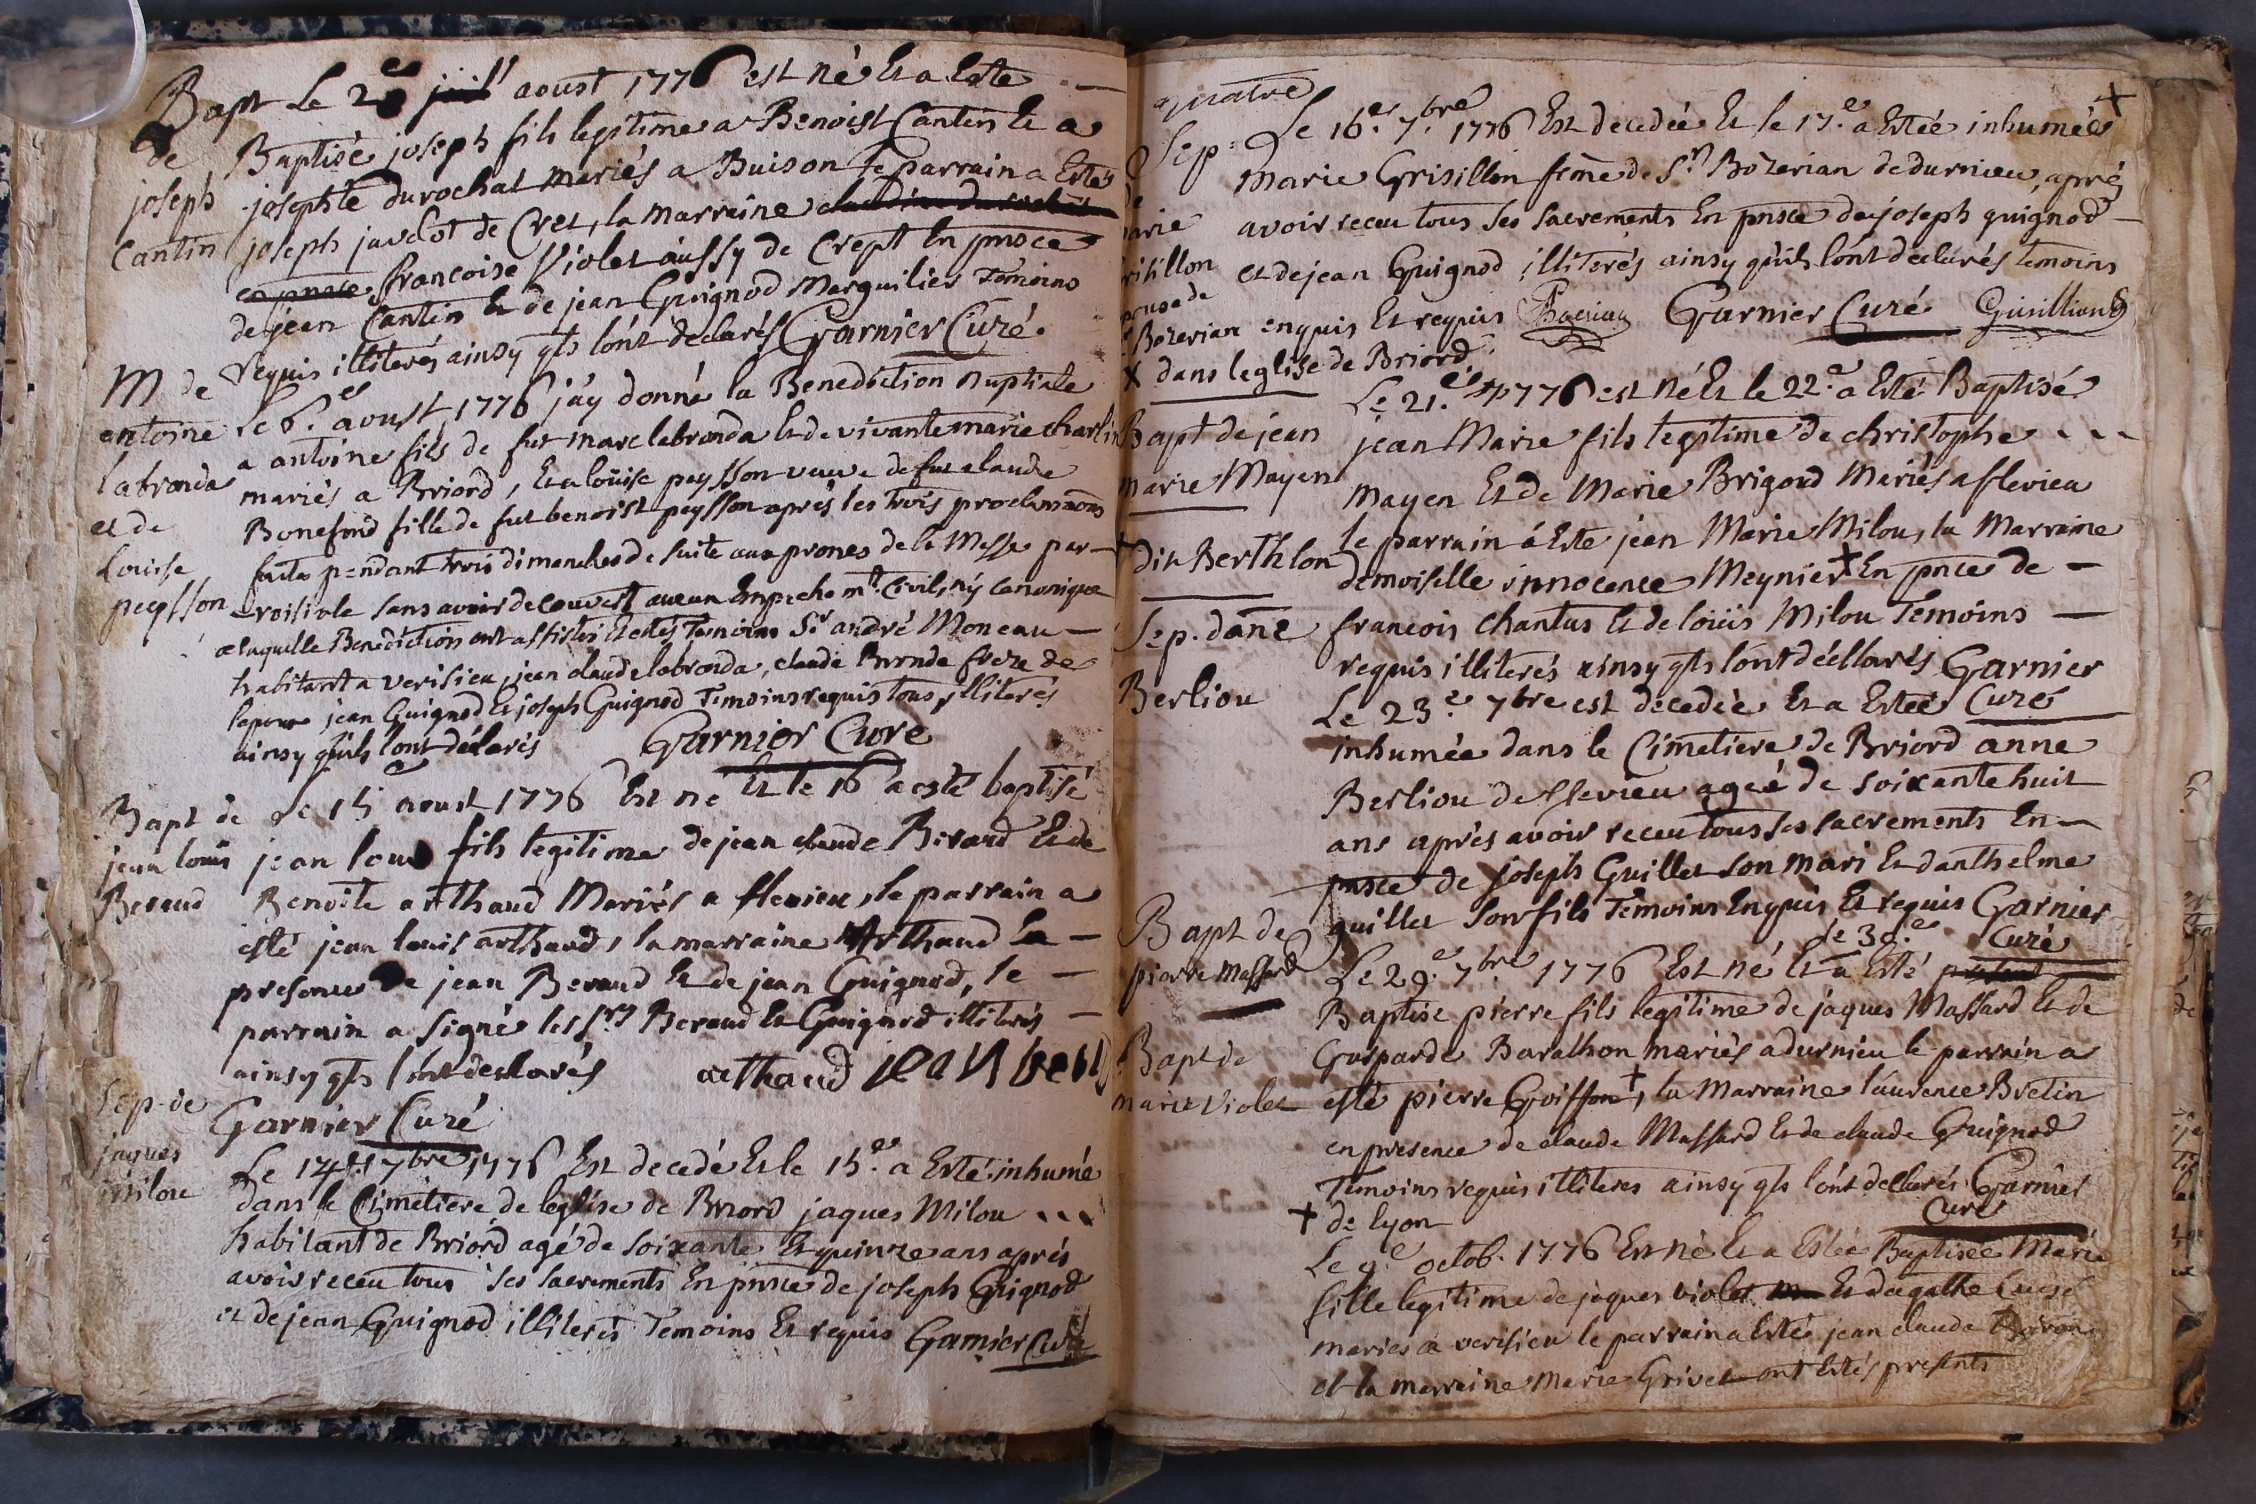 Bapt Le 2e aoust 1776 est né Et a Este
de Baptisé joseph fils legitime a Benoist Cantin Et a
joseph josephte durochat mariés a Buison le parrain a Estes
Cantin joseph javelot de Cret, la marraine
françoise Violet aussy de Crept En pnsce
de jean Cantin Et de jean Guignod Marguilier Temoins
requis illiterés ainsy qls lónt déclarés Garnier Curé
M de Le 6.e aoust 1776 j'ay donné la Benediction nuptiale
antoine a antoine fils de fut marc labronda Et de vivante marie charlin
labronda mariés a Briord, Et a loüise peysson veuve de fut claude
et de Bonefond fille de fut benoist peysson aprés les trois proclamaons
Louise faites pendant trois dimanches de suite aux prones de la Messe par-
peysson roisiale sans avoir decouvert aucun Empechemt. Civil, ny Canonique
a laquelle Benediction ont assistés Et estés Temoins Sr andré Moneau
habitant a verisieu, jean claude labronda, claude Brondа frere de
lepoux jean Guignod Et joseph Guignod Temoins requis tous illiterés
ainsy quils lont déclarés Garnier Curé
Bapt de Le 15 aoust 1776 Est né Et le 16 a esté baptisé
jean louis jean louis fils legitime de jean claude Biraud Et de
Beraud Benoite arthaud Mariés a flevieu, le parrain a
esté jean louis arthaud, la marraine Arthaud En
presence de jean Beraud Et de jean Guignod, le
parrain a signé les srs Beraud Et Guignod illiterés
ainsy qls lont declarés arthaud
Sep. de Garnier Curé
jaques Le 14e 7bre 1776 Est decedé Et le 15.e a Esté inhumé
milou dans le Cimetiere de leglise de Briord jaques Milou
habitant de Briord agé de soixante Et quinze ans aprés
avoir receu tous ses sacrements En pnsce de joseph Guignod
et de jean Guignod illiterés Temoins Et requis Garnier Curé
quatre
Sep: Le 16.e 7.bre 1776 Est decedée Et le 17.e a Estée inhumée +
de Marie Grisillon feme de Sr Bozerian de durnieu, aprés
marie avoir receu tous ses sacrements En pnsce de joseph guignod
Grisillon et de jean Guignod illiterés ainsy quils lónt declarés temoins
epouse de
Bozerian enquis Et requis Garnier Curé
X dans leglise de Briord
Le 21.e 1776 est né Et le 22.e a Esté Baptisé
Bapt de jean jean Marie fils legitime de christophe
marie Mayen mayen Et de Marie Brigoud Mariés a flevieu
le parrain á Este jean Marie Milou, la Marraine
+ dit Berthlon demoiselle innocence Meynier + En pnce de
Sep. dane francois chantus Et de loüis Milou Temoins
requis illiterés ainsy qls lónt déclarés Garnier
Berliou Le 23.e 7bre est decedée Et a Estée Curé
inhumée dans le Cimetiere de Briord anne
Berliou de flevieu ageé de soixante huit
ans aprés avoir receu tous ses sacrements En
pnsce de joseph Guillet son mari Et danthelme
Bapt de guillet son fils Temoins Enquis Et requis Garnier
le 30.e Curé
pierre Massard Le 29.e 7bre 1776 Est né Et a Esté
Baptise pierre fils legitime de jaques Massard Et de
Bapt de Gasparde Barathon mariés a durnieu le parrain a
marie Violet esté pierre Goiffon +, la Marraine laurence Bretin
en presence de claude Massard Et de claude Guignod
Temoins requis illiteres ainsy qls lónt declarés Garnier
+ de lyon Curé
Le 9.e octob. 1776 Est né Et a Estée Baptisée Marie
fille legitime de jaques violet Et dagathe
mariés a verisieu le parrain a Esté jean claude
et la marraine Marie Grivet ont Estés presents